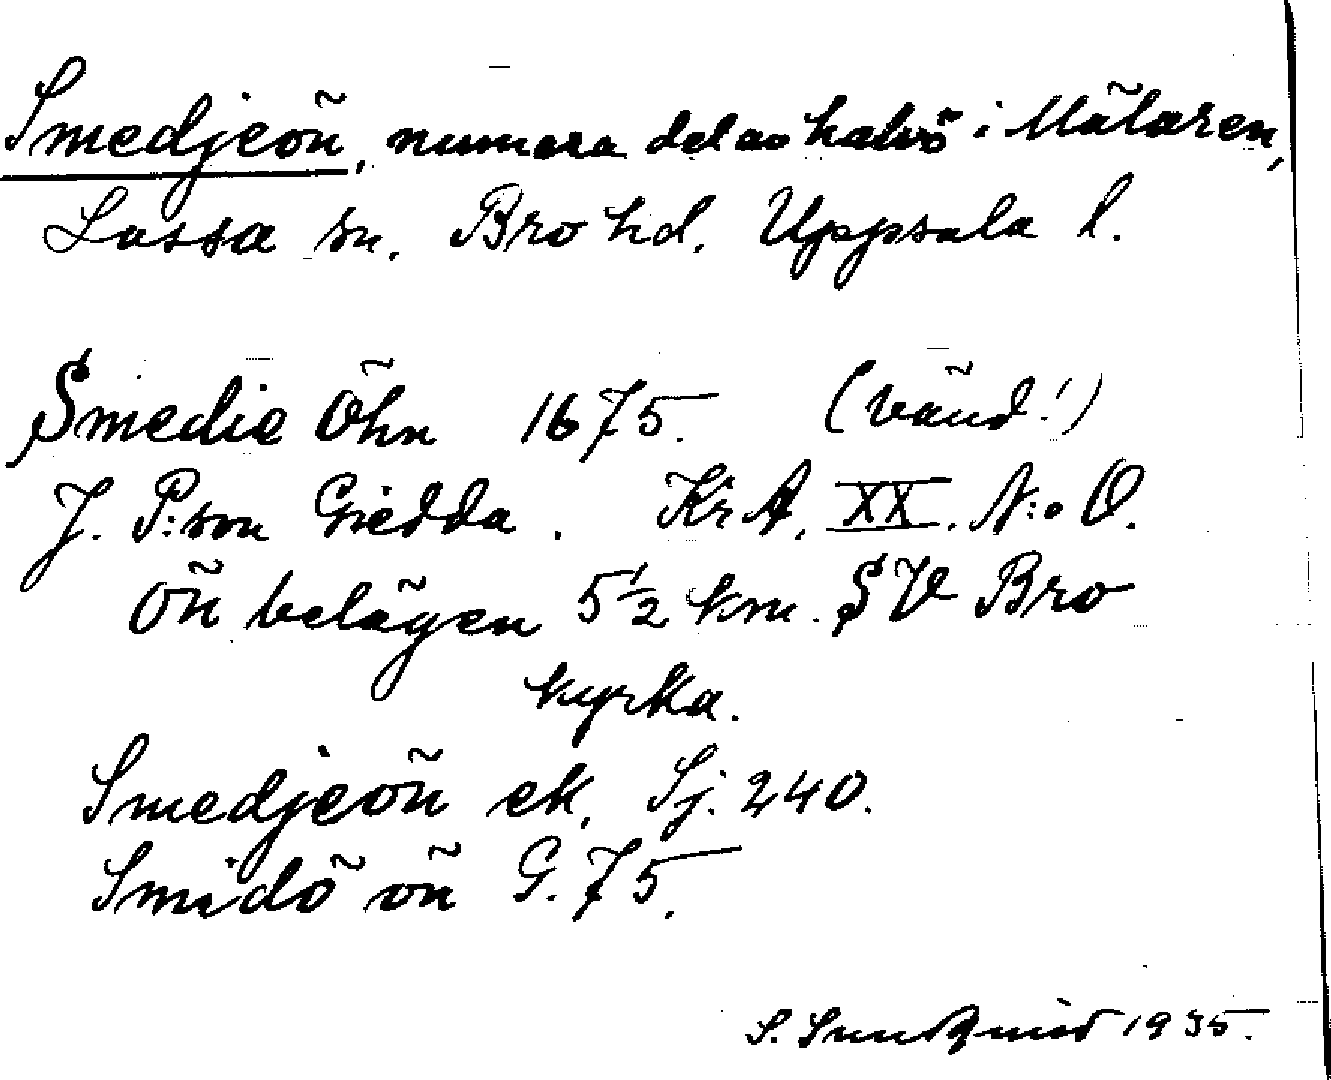 Smedjeön, numera del av halvö i Mälaren,
Lossa sn. Bro hd. Uppsala l.
Smedie Öhn 1675. (vänd!)
J. P:son Giedda. KrA, XX. N:o O.
Ön belägen 5 1/2 km. SV Bro
kyrka.
Smedjeön ek. Sj. 240.
Smidö ön G. 75.
S. Sundquist 1935.